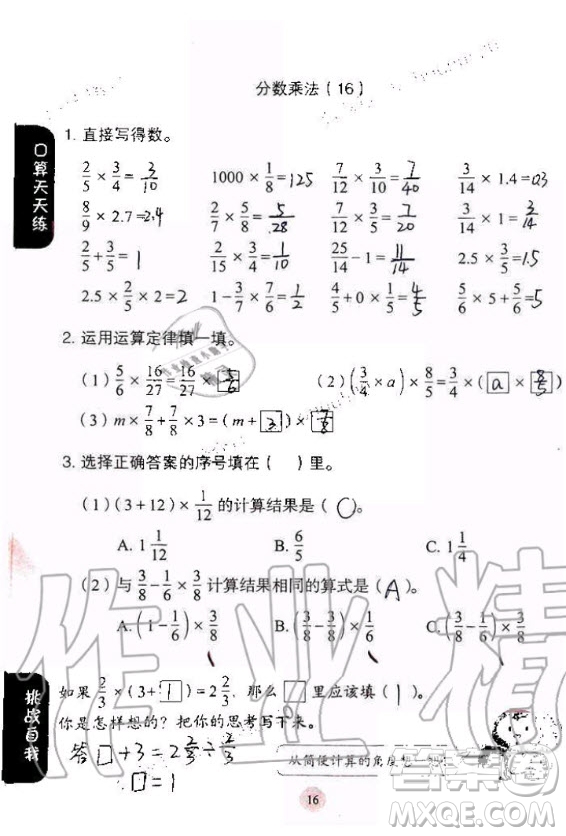 分数乘法(16)
口算天天练
1. 直接写得数。
2/5 × 3/4 = 3/10  1000 × 1/8 = 125  7/12 × 3/10 = 7/40  3/14 × 1.4 = 0.3
8/9 × 2.7 = 2.4  2/7 × 5/8 = 5/28  7/12 × 3/5 = 7/20  3/14 × 1 = 3/14
2/5 + 3/5 = 1  2/15 × 3/4 = 1/10  25/14 − 1 = 11/14  2.5 × 3/5 = 1.5
2.5 × 2/5 × 2 = 2  1 − 3/7 × 7/6 = 1/2  4/5 + 0 × 1/4 = 4/5  5/6 × 6 = 5
2. 运用运算定律填一填。
(1) 5/6 × 16/27 = 16/27 × 5/6  (2) (3/4 × a) × 8/5 = 3/4 × (a × 8/5)
(3) m × 7/8 + 7/8 × 3 = (m + 3) × 7/8
3. 选择正确答案的序号填在( )里。
(1) (3 + 12) × 1/12 的计算结果是( C )。
A. 1 1/12  B. 6/5  C. 1 1/4
(2) 与 3/8 − 1/6 × 3/8 计算结果相同的算式是( A )。
A. (1 − 1/6) × 3/8  B. (3/8 − 3/8) × 1/6  C. (3/8 − 1/6) × 3/8
挑战自我
如果 2/3 × (3 + 1) = 2 2/3, 那么 □ 里应该填( 1 )。
你是怎样想的? 把你的思考写下来。
答 □ + 3 = 2 2/3 ÷ 2/3
□ = 1
从简便计算的角度想一想
16
作业精
答案圈
MXQE.COM